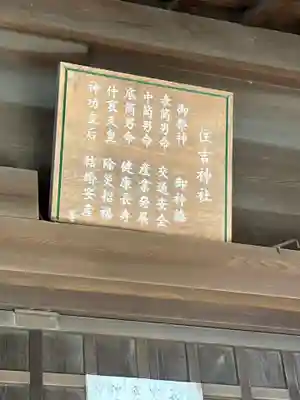 住吉神社
御祭神 御神徳
表筒男命 交通安全
中筒男命 産業発展
底筒男命 健康長寿
仲哀天皇 除災招福
神功皇后 結婚安産